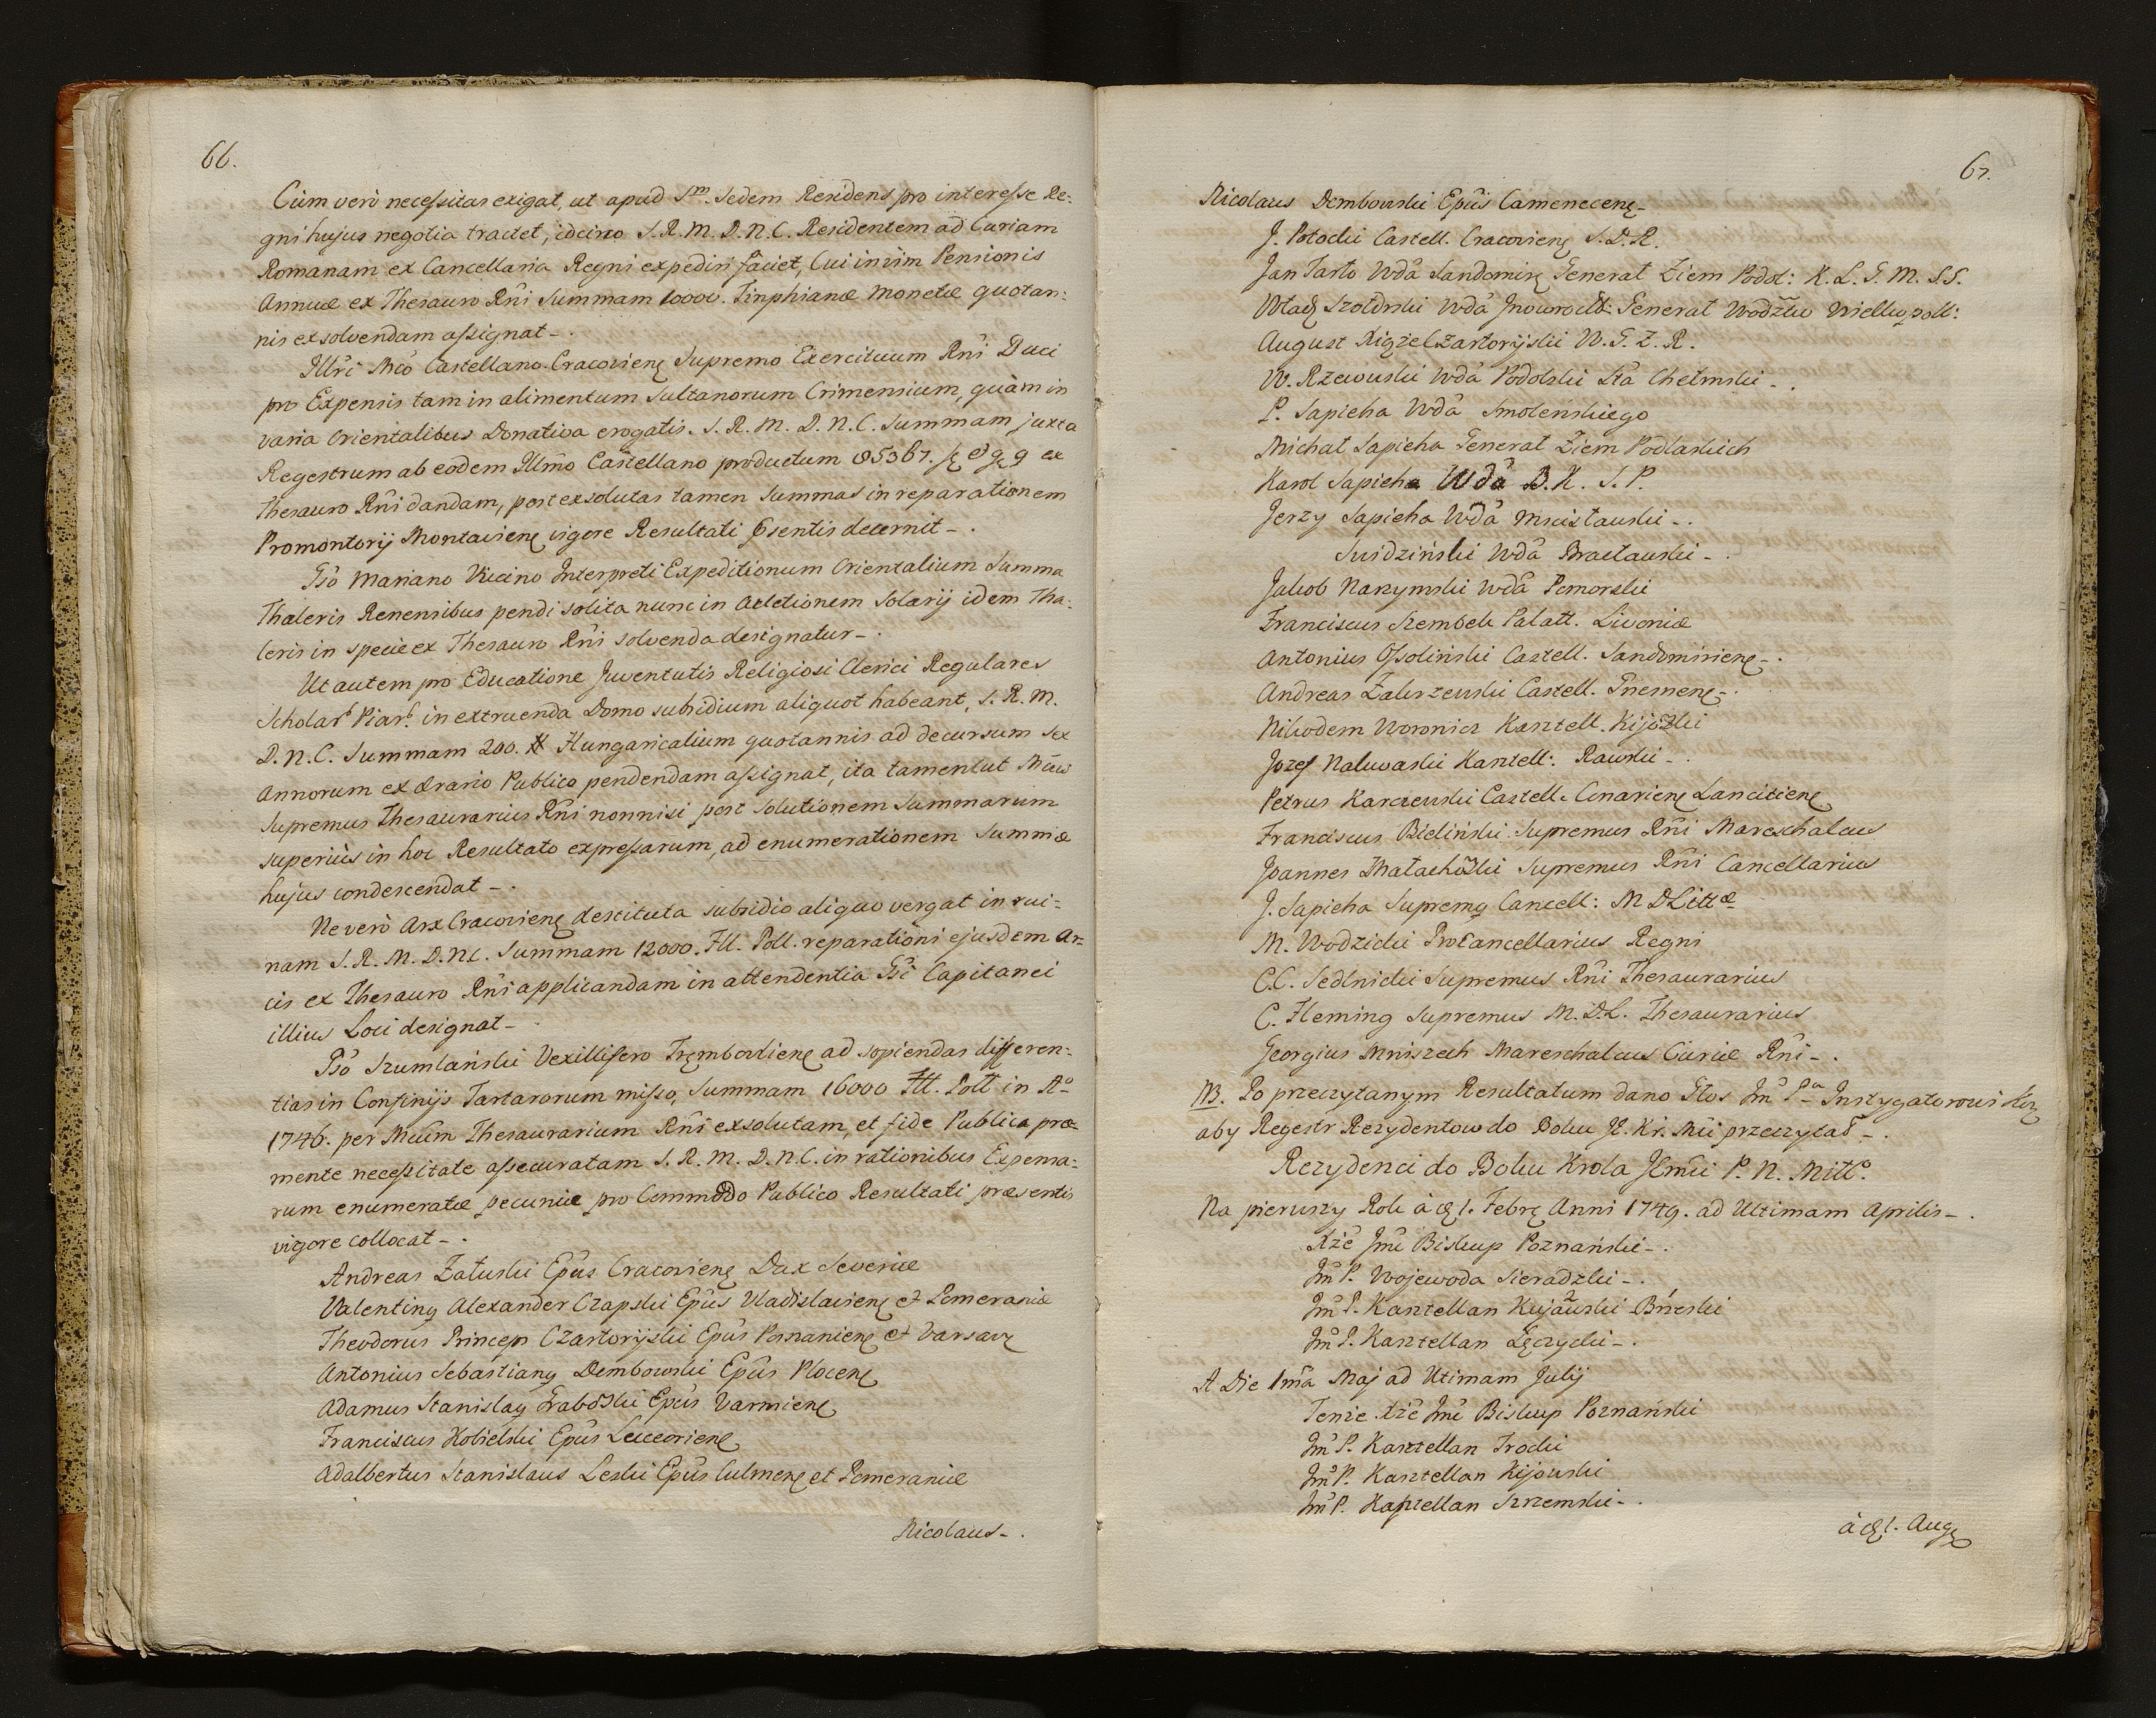 66.
Cùm verò necessitas exigat, ut apud S.m Sedem Residens pro interesse Re:
gni hujus negotia tractet, idcirco S. R. M. D. N. C. Residentem ad Curiam
Romanam ex Cancellaria Regni expediri faciet, Cui in vim Pensionis
Annuæ ex Thesauro Rñi Summam 10000. Tinphianæ Monetæ quotan:
nis exsolvendam assignat _ .
Illri Mco Castellano Cracovien Supremo Exercituum Rñi Duci
pro Expensis tam in alimentum Sultanorum Crimensium, quàm in
varia Orientalibus Donativa erogatis. S. R. M. D. N. C. Summam juxta
Regestrum ab eodem Illmo Castellano productum 85367. ex
Thesauro Rñi dandam, post exsolutas tamen Summas in reparationem
Promontorij Montavien vigore Resultati psentis decernit _ .
Gso Mariano Viccino Interpreti Expeditionum Orientalium Summa
Thaleris Renensibus pendi solita nunc in adletionem Solarij idem Tha:
leris in specie ex Thesauro Rñi solvenda designatur _ .
Ut autem pro Educatione Juventutis Religiosi Clerici Regulares
Scholar. Piar. in extruenda Domo subsidium aliquot habeant, S. R. M.
D. N. C. Summam 200. # Hungaricalium quotannis ad decursum sex
Annorum ex ærario Publico pendendam assignat, ita tamen ut
Supremus Thesaurarius Rñi nonnisi post solutionem Summarum
superiùs in hoc Resultato expressarum, ad enumerationem Summæ
hujus condescendat _ .
Ne verò Arx Cracovien destituta subsidio aliquo vergat in rui:
nam S. R. M. D. N. C. Summam 12000. Fll. Poll. reparationi ejusdem Ar:
cis ex Thesauro Rñi applicandam in attendentia Gsi Capitanei
illius Loci designat _
Gso Szumlański Vexillifero Trembovlien ad sopiendas differen:
tias in Confinijs Tartarorum misso, Summam 16000 Fll. Poll in Ao
1746. per Thesaurarium Rñi exsolutam, et fide Publica præ:
mente necessitate assecuratam S. R. M. D. N. C. in rationibus Expensa:
rum enumeratæ pecuniæ pro Commodo Publico Resultati præsentis
vigore collocat _ .
Andreas Załuski Epus Cracovien Dux Severiæ
Valentinq Alexander Czapski Epus Vladislavien et Pomeraniæ
Theodorus Princeps Czartoryski Epus Posnanien et Varsav
Antonius Sebastianq Dembowski Epus Plocen
Adamus Stanislaq Grabowski Epus Varmien
Franciscus Kobielski Epus Luceorien
Adalbertus Stanislaus Leski Epus Culmen et Pomeraniæ
Nicolaus _ .
67.
Nicolaus Dembowski Epus Camenecen _
J. Potocki Castell. Cracovien S. D. R.
Jan Tarło Wda Sandomir Generał Ziem Podol: K. L. G. M. S. S.
Wład Szołdrski Wda Inowrocł: Generał Wodztw Wielkopoll:
August Xiąże Czartoryjski W. G. Z. R.
W. Rzewuski Wda Podolski Sta Chełmski _ .
P. Sapieha Wda Smoleńskiego
Michał Sapieha Generał Ziem Podlaskich
Karol Sapieha Wda B. K. S. P.
Jerzy Sapieha Wda Mscisławski _ .
Swidziński Wda Bracławski _ .
Jakob Narzymski Wda Pomorski
Franciscus Szembek Palatt. Livoniæ
Antonius Ossoliński Castell. Sandomirien _ .
Andreas Zakrzewski Castell. Gnesnen _ .
Nikodem Woronicz Kasztell. Kijowski
Jozef Nakwaski Kasztell: Rawski _ .
Petrus Karczewski Castell. Conarien Lancicien
Franciscus Bieliński Supremus Rñi Mareschalcus
Joannes Małachowski Supremus Rñi Cancellarius
J. Sapieha Supremq Cancell: M D Littæ
M. Wodzicki ProCancellarius Regni
C. C. Sedlnicki Supremus Rñi Thesaurarius
C. Fleming Supremus M. D. L. Thesaurarius
Georgius Mniszech Mareschalcus Curiæ Rñi _ .
NB. Po przeczytanym Resultatum dano Głos Jm Pa Instygatorowi Kor
aby Regestr Rezydentow do Boku J. Kr. Mci przeczytał _ .
Rezydenci do Boku Krola JEmci P. N. Miłł.
Na pierwszy Rok à 1. Febr Anni 1749. ad Ultimam Aprilis _ .
Xże Jmc Biskup Poznański _ .
Jm P. Wojewoda Sieradzki _ .
Jm P. Kasztellan Kujawski Brzeski
Jm P. Kasztellan Łęczycki _ .
A Die 1ma Maj ad Ultimam Julij
Tenże Xże Jmc Biskup Poznański
Jm P. Kasztellan Trocki
Jm P. Kasztellan Kijowski
Jm P. Kasztellan Szremski _ .
à 1. Aug